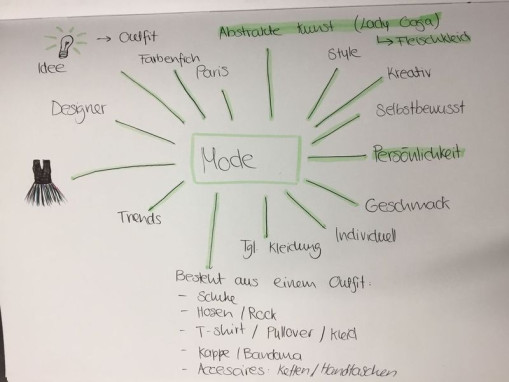 Idee → Outfit
Abstrakte Kunst (Lady Gaga)
↳ Fleischkleid
Farbenfroh
Paris
Style
Kreativ
Designer
Selbstbewusst
Mode
Persönlichkeit
Geschmack
Trends
Individuell
Tgl. Kleidung
Besteht aus einem Outfit.
- Schuhe
- Hosen / Rock
- T-shirt / Pullover / Kleid
- Kappe / Bandana
- Accesoires: Ketten / Handtaschen